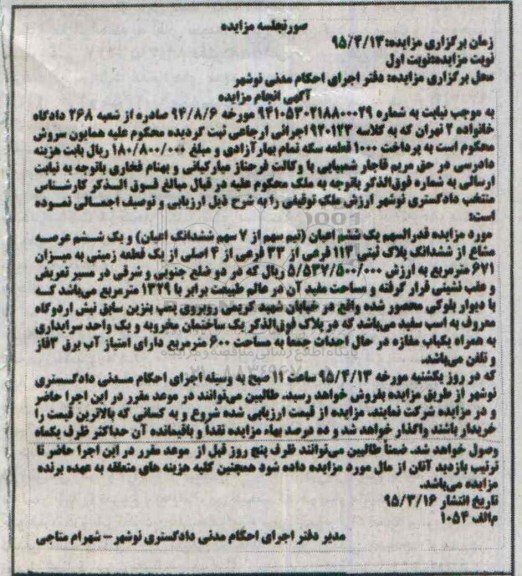 صورتجلسه مزایده
زمان برگزاری مزایده:۹۵/۴/۱۳
نوبت مزایده:نوبت اول
محل برگزاری مزایده: دفتر اجرای احکام مدنی نوشهر
آگهی انجام مزایده
به موجب نیابت به شماره ۹۴۱۰۵۳۰۲۱۸۸۰۰۰۲۹ مورخه ۹۴/۸/۶ صادره از شعبه ۲۶۸ دادگاه
خانواده ۲ تهران که به کلاسه ۹۴۰۱۲۳اجرائی ارجاعی ثبت گردیده محکوم علیه همایون سروش
محکوم است به پرداخت ۱۰۰۰ قطعه سکه تمام بهار آزادی و مبلغ ۱۸۰/۸۰۰/۰۰۰ ریال بابت هزینه
دادرسی در حق مریم قاجار شمبیایی با وکالت فرحناز مبارکیانی و بهنام فخاری باتوجه به نیابت
ارسالی به شماره فوق‌الذکر باتوجه به ملک محکوم علیه در قبال مبالغ فوق الذکر کارشناس
منتخب دادگستری نوشهر ارزش ملک توقیفی را به شرح ذیل ارزیابی و توصیف اجمالی نموده
است:
مورد مزایده قدرالسهم یک ششم اعیان (نیم سهم از ۷ سهم ششدانگ اعیان) و یک ششم عرصه
مشاع از ششدانگ پلاک ثبتی ۱۱۴ فرعی از ۳۳ فرعی از ۴ اصلی از یک قطعه زمینی به میزان
۶۷۱ مترمربع به ارزش ۵/۵۳۷/۵۰۰/۰۰۰ ریال که در دو ضلع جنوبی و شرقی در مسیر تعریض
و عقب نشینی قرار گرفته و مساحت مفید آن در عالم طبیعت برابر با ۱۳۲۹ مترمربع می‌باشد که
با دیوار بلوکی محصور شده واقع در خیابان شهید کریمی روبروی پمپ بنزین سابق نبش اردوگاه
معروف به اسب سفید می‌باشد که در پلاک فوق‌الذکر یک ساختمان مخروبه و یک واحد سرایداری
به همراه یکباب مغازه در حال احداث جمعا به مساحت ۶۰۰ مترمربع دارای امتیاز آب برق ۳فاز
و تلفن می‌باشد.
که در روز یکشنبه مورخه ۹۵/۴/۱۳ ساعت ۱۱ صبح به وسیله اجرای احکام مدنی دادگستری
نوشهر از طریق مزایده بفروش خواهد رسید. طالبین می‌توانند در موعد مقرر در این اجرا حاضر
و در مزایده شرکت نمایند. مزایده از قیمت ارزیابی شده شروع و به کسانی که بالاترین قیمت را
خریدار باشند واگذار خواهد شد و ده درصد بهاء مزایده نقدا و باقیمانده آن حداکثر ظرف یکماه
وصول خواهد شد. ضمناً طالبین می‌توانند ظرف پنج روز قبل از موعد مقرر در این اجرا حاضر تا
ترتیب بازدید آنان از مال مورد مزایده داده شود همچنین کلیه هزینه های متعلقه به عهده برنده
مزایده می‌باشد.
تاریخ انتشار ۹۵/۳/۱۶
م‌الف ۱۰۵۴
مدیر دفتر اجرای احکام مدنی دادگستری نوشهر - شهرام متاجی